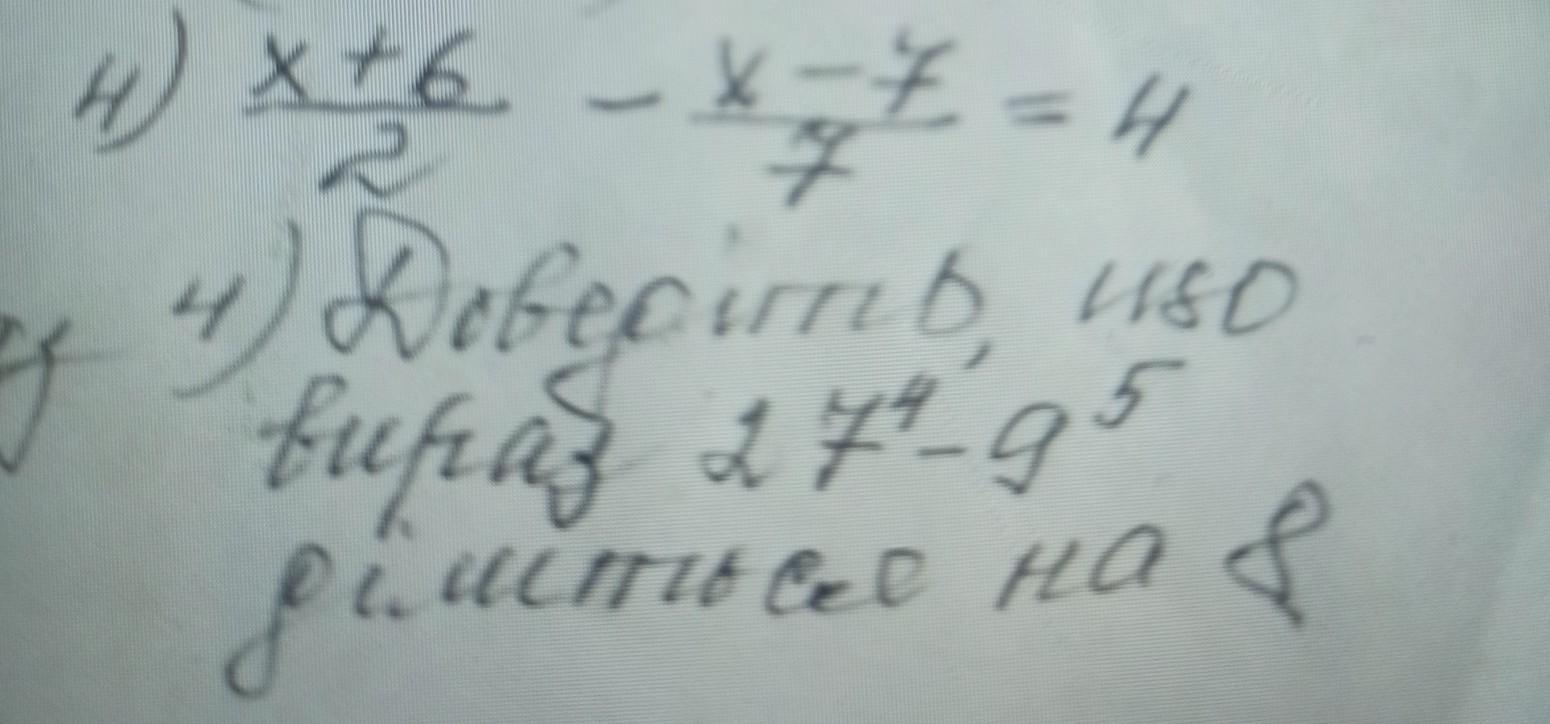 4) x+6/2 - x-7/7 = 4
4) Доведіть, що
вираз 27⁴-9⁵
ділиться на 8